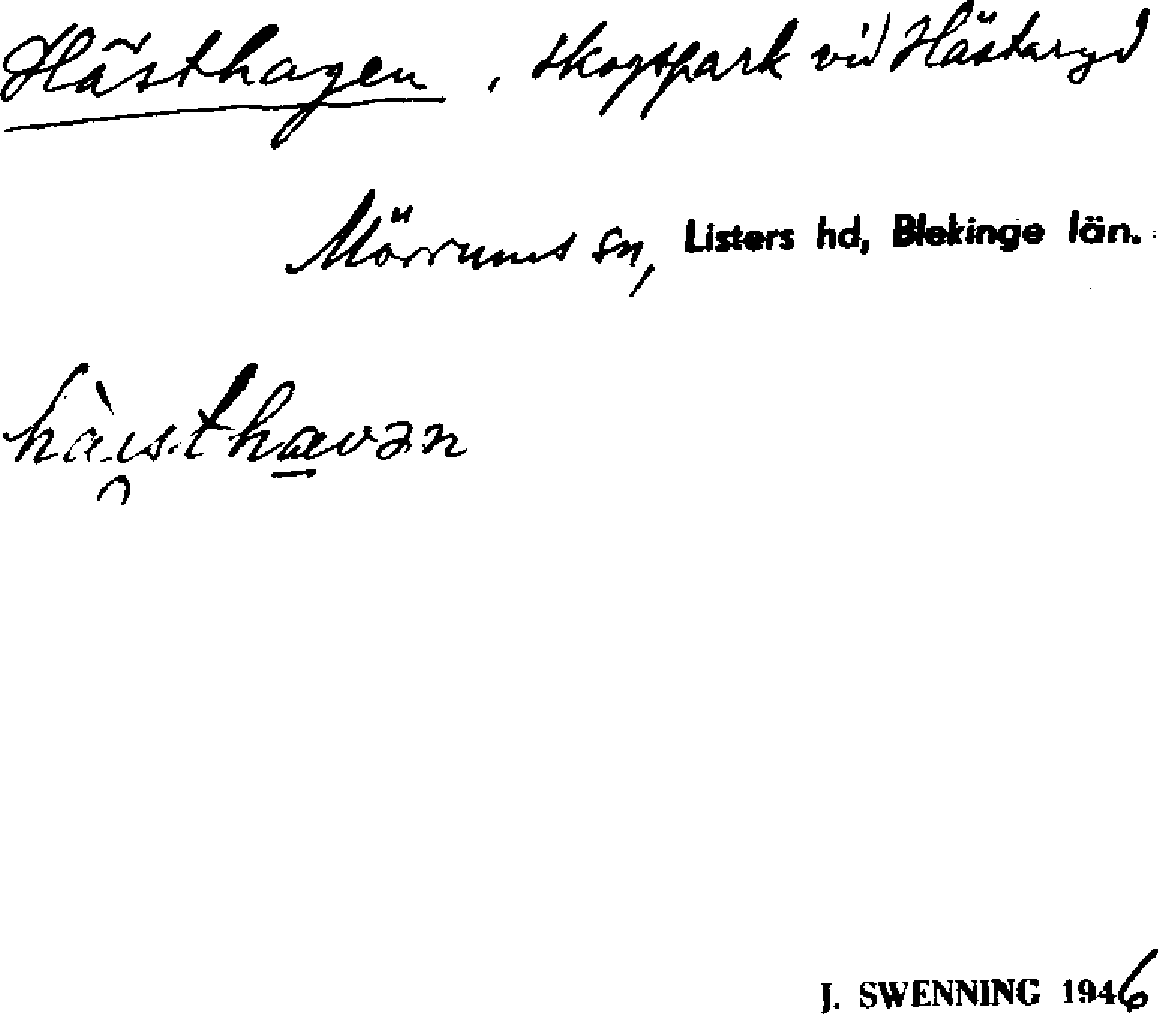 Hästhagen, skogspark vid Hästaryd
Mörrums sn, Listers hd, Blekinge län.
hàıst.havən
J. SWENNING 1946